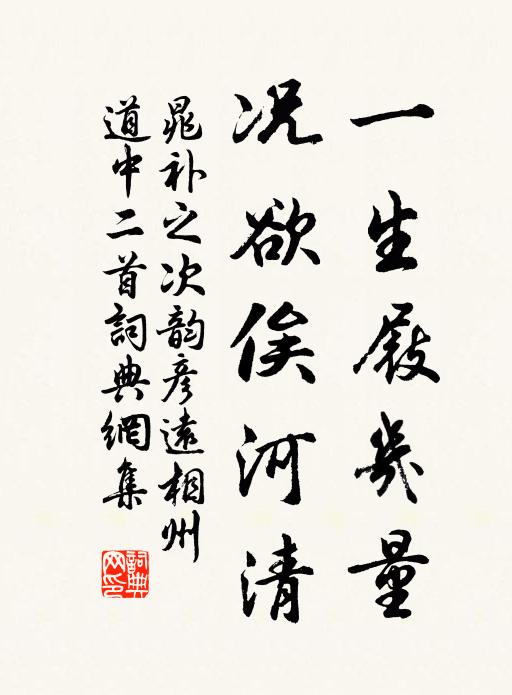 一生屐幾量
况欲俟河清
晁补之次韵彦遠相州
道中二首詞典網集
詞典
网印